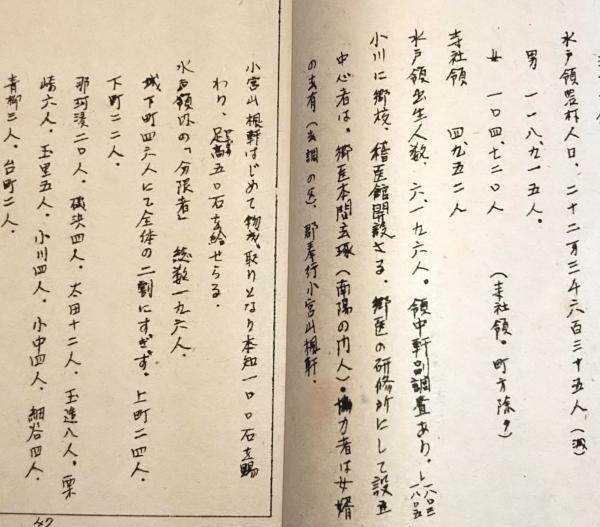 水戸領農村人口、二十二万三千六百三十五人(減)
男 一一八、九一五人。
女 一〇四、七二〇人
(寺社領、町方除ク)
寺社領 四、九五二人
水戸領出生人数 六、一九六人。領中軒別調査あり。
一八〇三
一八〇五
小川に郷校、稽医館開設さる。郷医の研修所にして設立
中心者は、郷医本間玄琢(南陽の門人)。協力者は女婿
の玄有(玄調の父)、郡奉行小宮山楓軒、
小宮山楓軒はじめて物成取りとなり本知一〇〇石を賜
わり、足高五〇石を給せらる。
水戸領外の「分限者」 総数一九六人。
城下町四六人にて全体の二割にすぎず。上町二四人、
下町二二人。
那珂湊二〇人、磯浜四人、太田十二人、玉造八人、栗
崎六人、玉里五人、小川四人、小中四人、細谷四人、
青柳三人、台町二人。
47